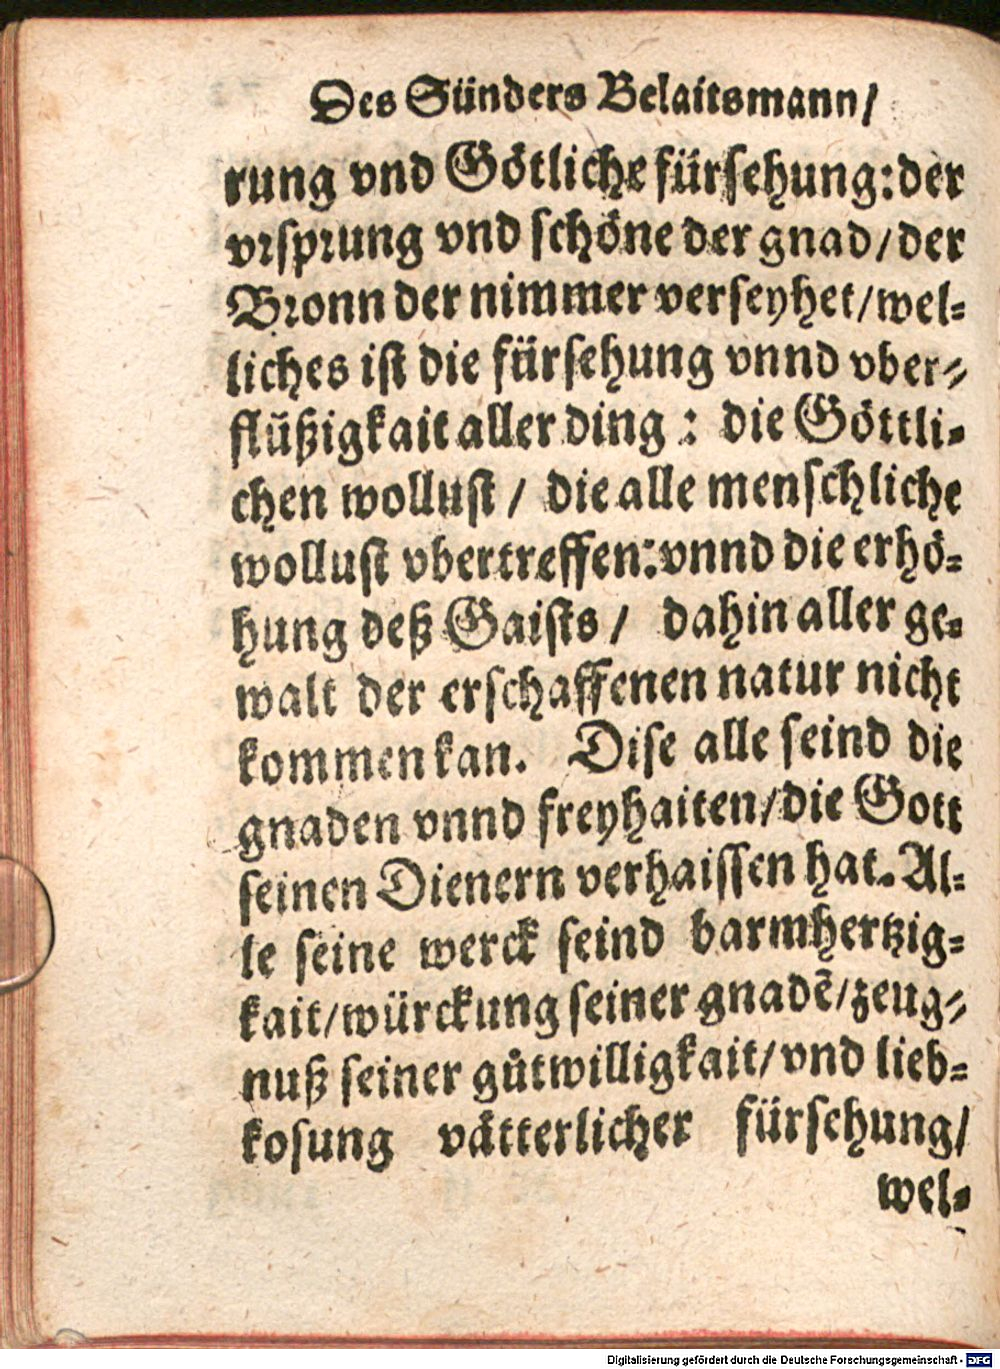 Des Sünders Belaitsmann/
rung vnd Götliche fürsehung: der
vrsprung vnd schöne der gnad/der
Bronn der nimmer verseyhet/wel-
liches ist die fürsehung vnnd vber-
flüßigkait aller ding : die Göttli-
chen wollust / die alle menschliche
wollust vbertreffen: vnnd die erhö-
hung deß Gaists / dahin aller ge-
walt der erschaffenen natur nicht
kommen kan. Dise alle seind die
gnaden vnnd freyhaiten/die Gott
seinen Dienern verhaissen hat. Al-
le seine werck seind barmhertzig-
kait/würckung seiner gnadē/zeug-
nuß seiner gůtwilligkait/vnd lieb-
kosung vätterlicher fürsehung/
wel-
Digitalisierung gefördert durch die Deutsche Forschungsgemeinschaft - DFG